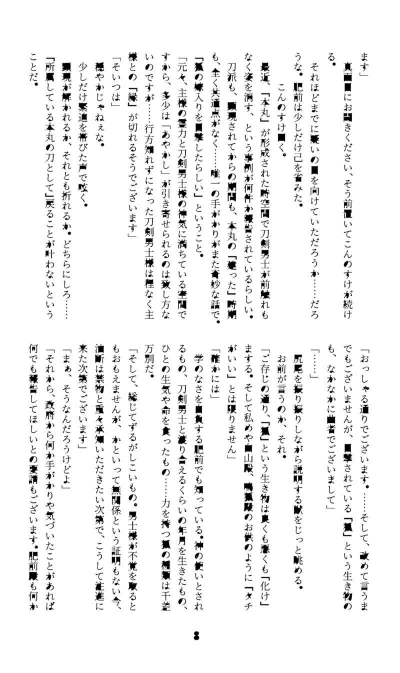 ます」
真面目にお聞きください、そう前置いてこんのすけが続け
る。
それほどまでに疑いの目を向けていただろうか……だろ
うな。肥前は少しだけ己を省みた。
こんのすけ曰く。
最近、「本丸」が形成された時空間で刀剣男士が前触れも
なく姿を消す、という事例が何件か報告されているらしい。
刀派も、顕現されてからの期間も、本丸の「建った」時期
も、全く共通点がなく……唯一の手がかりがまた奇妙な話で。
「狐の嫁入りを目撃したらしい」ということ。
「元々、主様の霊力と刀剣男士様の神気に満ちている空間で
すから、多少は「あやかし」が引き寄せられるのは致し方な
いのですが……行方知れずになった刀剣男士様は程なく主
様との「縁」が切れるそうでございます」
「そいつは」
穏やかじゃねぇな。
少しだけ緊迫を帯びた声で呟く。
顕現が解かれるか、それとも折れるか。どちらにしろ……
「所属している本丸の刀として」戻ることが叶わないという
ことだ。
「おっしゃる通りでございます。……そして、改めて言うま
でもございませんが、目撃されている「狐」という生き物の
も、なかなかに曲者でございまして」
「……」
尻尾を振り振りしながら説明する獣をじっと眺める。
お前が言うのか、それ。
「ご存じの通り、「狐」という生き物は良くも悪くも「化け」
まする。そして私めや白山殿、鳴狐殿のお供のように「タチ
がいい」とは限りません」
「確かには」
学のなさを自負する肥前でも知っている。神の使いとされ
るもの、刀剣男士と渡り合えるくらいの年月を生きたもの、
ひとの生気や命を食ったもの……力を持つ狐の種類は千差
万別だ。
「そして、総じてずるがしこいもの。男士様が不覚を取ると
もおもえませんが、かといって無関係という証明もない今、
油断は禁物と重々承知いただきたい次第で、こうして注進に
来た次第でございます」
「まぁ、そうなんだろうけどよ」
「それから、政府から何か手がかりや気づいたことがあれば
何でも報告してほしいとの要請もございます。肥前殿も何か
8